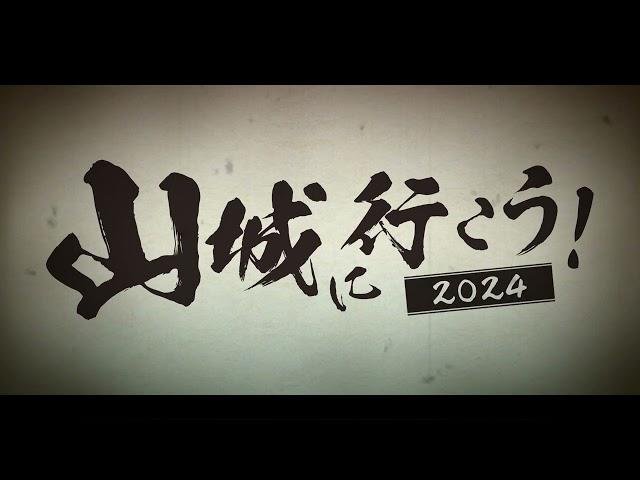 山城に行こう!
2024